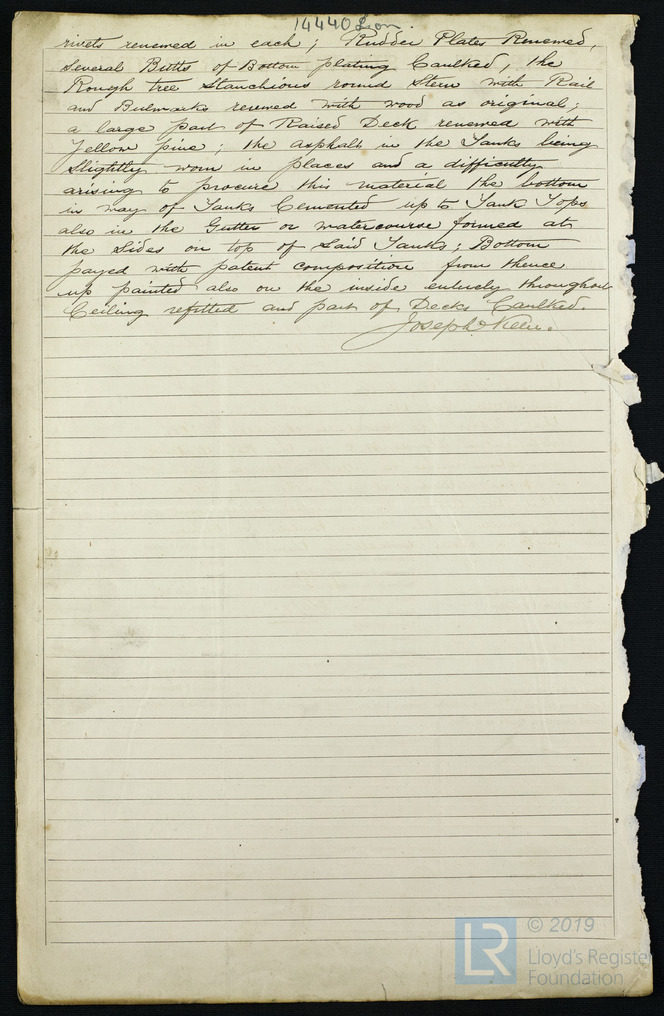 14440 Lon.
rivets renewed in each; Rudder Plates Renewed,
Several Butts of Bottom plating Caulked, the
Rough tree Stanchions round Stern with Rail
and Bulwarks renewed with wood as original;
a large part of Raised Deck renewed with
Yellow pine; the asphalt in the Tanks being
Slightly worn in places and a difficulty
arising to procure this material the bottom
in way of Tanks Cemented up to Tank Tops
also in the Gutter or watercourse formed at
the Sides on top of Said Tanks; Bottom
payed with patent composition from thence
up painted also on the inside entirely throughout
Ceiling refitted and part of Decks Caulked.
Joseph Keen.
LR
© 2019
Lloyd's Register
Foundation